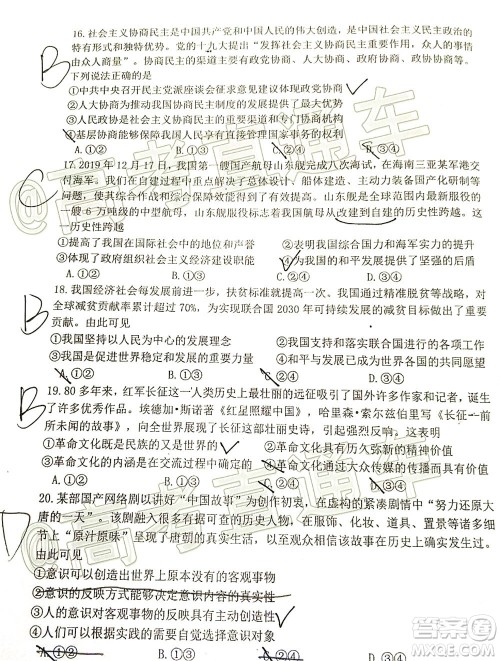 16.社会主义协商民主是中国共产党和中国人民的伟大创造，是中国社会主义民主政治的
特有形式和独特优势。党的十九大提出“发挥社会主义协商民主重要作用，众人的事情
由众人商量”。协商民主的渠道主要有政党协商、人大协商、政府协商、政协协商等。
B
下列说法正确的是
①中共中央召开民主党派座谈会征求意见建议体现政党协商
②人大协商为推动我国协商民主制度的发展提供了坚实基础
③人民政协是协商民主的重要渠道和专门协商机构
④基层协商能够保障人民享有直接管理国家事务的权利
A.①② B.①③ C.②④ D.③④
17.2019 年 12 月 17 日，我国第一艘国产航母山东舰完成八次海试，在海南三亚某军港交
付海军。人们在建造过程中重点解决了总体设计、船体建造、主动力装备国产化研制等
C
问题，使其综合作战和综合保障能力显著提高。山东舰是全球范围内最新服役的
一艘 6 万吨级的中型航母，山东舰服役标志着我国航母从改建到自建的历史性跨越。这
一历史性跨越
①提高了我国在国际社会中的地位和声誉 ②表明我国综合国力和海军实力显著提升
③体现了政府组织社会主义经济建设职能 ④为我国的和平发展提供了坚强的后盾
A.①② B.①③ C.②④ D.③④
18.我国经济社会每前发展一步，扶贫标准就提高一步，通过实施精准脱贫等战略，对
全球减贫贡献率累计超过 70%，为实现联合国 2030 年可持续发展的减贫目标做出了重要
B
贡献。由此可见
①我国坚持以人民为中心的发展理念 ②我国积极落实和推动联合国进行的各项工作
③我国促进了世界的和平与发展 ④和平与发展成为我国对外关系的基本目标
A.①② B.①③ C.②④ D.③④
B
19.80 多年来，红军长征这一人类历史上最壮丽的远征吸引了国外许多作家和记者，诞
生了许多优秀作品。埃德加·斯诺著《红星照耀中国》，哈里森·索尔兹伯里写《长征—前
所未闻的故事》，向全世界展现了长征这部壮丽史诗。由此可见
①革命文化既是民族的又是世界的 ②革命文化具有丰富多样的精神价值
③革命文化的内涵正逐步世界化 ④革命文化通过大众传媒传播精神价值
A.①② B.①④ C.②③ D.③④
20.某部国产网络剧以讲好“中国故事”的创作初衷，在虚构的紧凑剧情中“努力还原大
唐的一天”。该剧融入了许多可查可依的历史人物、文化元素，在服饰、道具、置景等诸多细
D
节上“原汁原味”呈现了唐朝的真实生活，以期让观众在娱乐之余能够真正了解历史。
由此可见
①意识可以创造出世界上原本没有的客观事物
②意识的反映方式能够决定意识内容的真实性
③人的意识对客观事物的反映具有主动创造性
④人们可以按照自己的意识选择意识对象
A.①② B.①③ C.②④ D.③④
@高考直通车
@高考直通车
答案圈
MXQE.COM